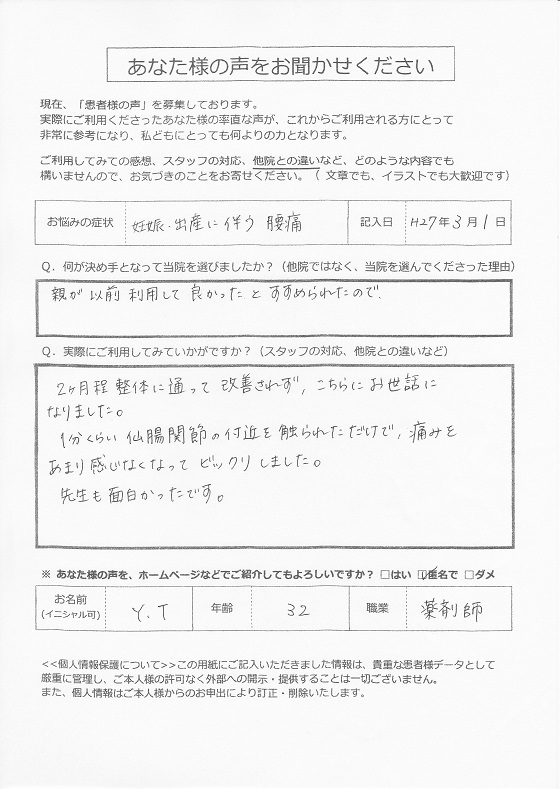 あなた様の声をお聞かせください
現在、「患者様の声」を募集しております。
実際にご利用くださったあなた様の率直な声が、これからご利用される方にとって
非常に参考になり、私どもにとっても何よりの力となります。
ご利用してみての感想、スタッフの対応、他院との違いなど、どのような内容でも
構いませんので、お気づきのことをお寄せください。（ 文章でも、イラストでも大歓迎です）
お悩みの症状 妊娠・出産に伴う 腰痛 記入日 H27年3月1日
Q．何が決め手となって当院を選びましたか？（他院ではなく、当院を選んでくださった理由）
親が以前利用して良かったとすすめられたので.
Q．実際にご利用してみていかがですか？（スタッフの対応、他院との違いなど）
2ヶ月程整体に通って改善されず, こちらにお世話に
なりました。
1分くらい仙腸関節の付近を触られただけで, 痛みを
あまり感じなくなってビックリしました。
先生も面白かったです。
※ あなた様の声を、ホームページなどでご紹介してもよろしいですか？ □はい ☑匿名で □ダメ
お名前 (イニシャル可) Y.T 年齢 32 職業 薬剤師
<<個人情報保護について>>この用紙にご記入いただきました情報は、貴重な患者様データとして
厳重に管理し、ご本人様の許可なく外部への開示・提供することは一切ございません。
また、個人情報はご本人様からのお申出により訂正・削除いたします。